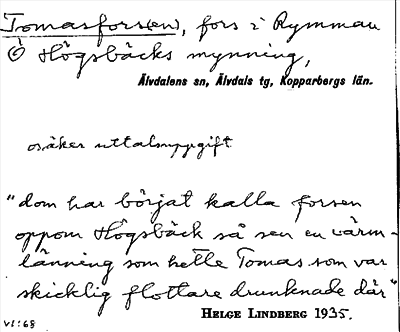 Tomasfors(en), fors i Rymman
Ö Högsbäcks mynning,
Älvdalens sn, Älvdals tg, Kopparbergs län.
osäker uttalsuppgift
"dom har börjat kalla forsen
oppom Högsbäck så sen en värm-
länning som hette Tomas som var
skicklig flottare drunknade där"
HELGE LINDBERG 1935.
VI:68